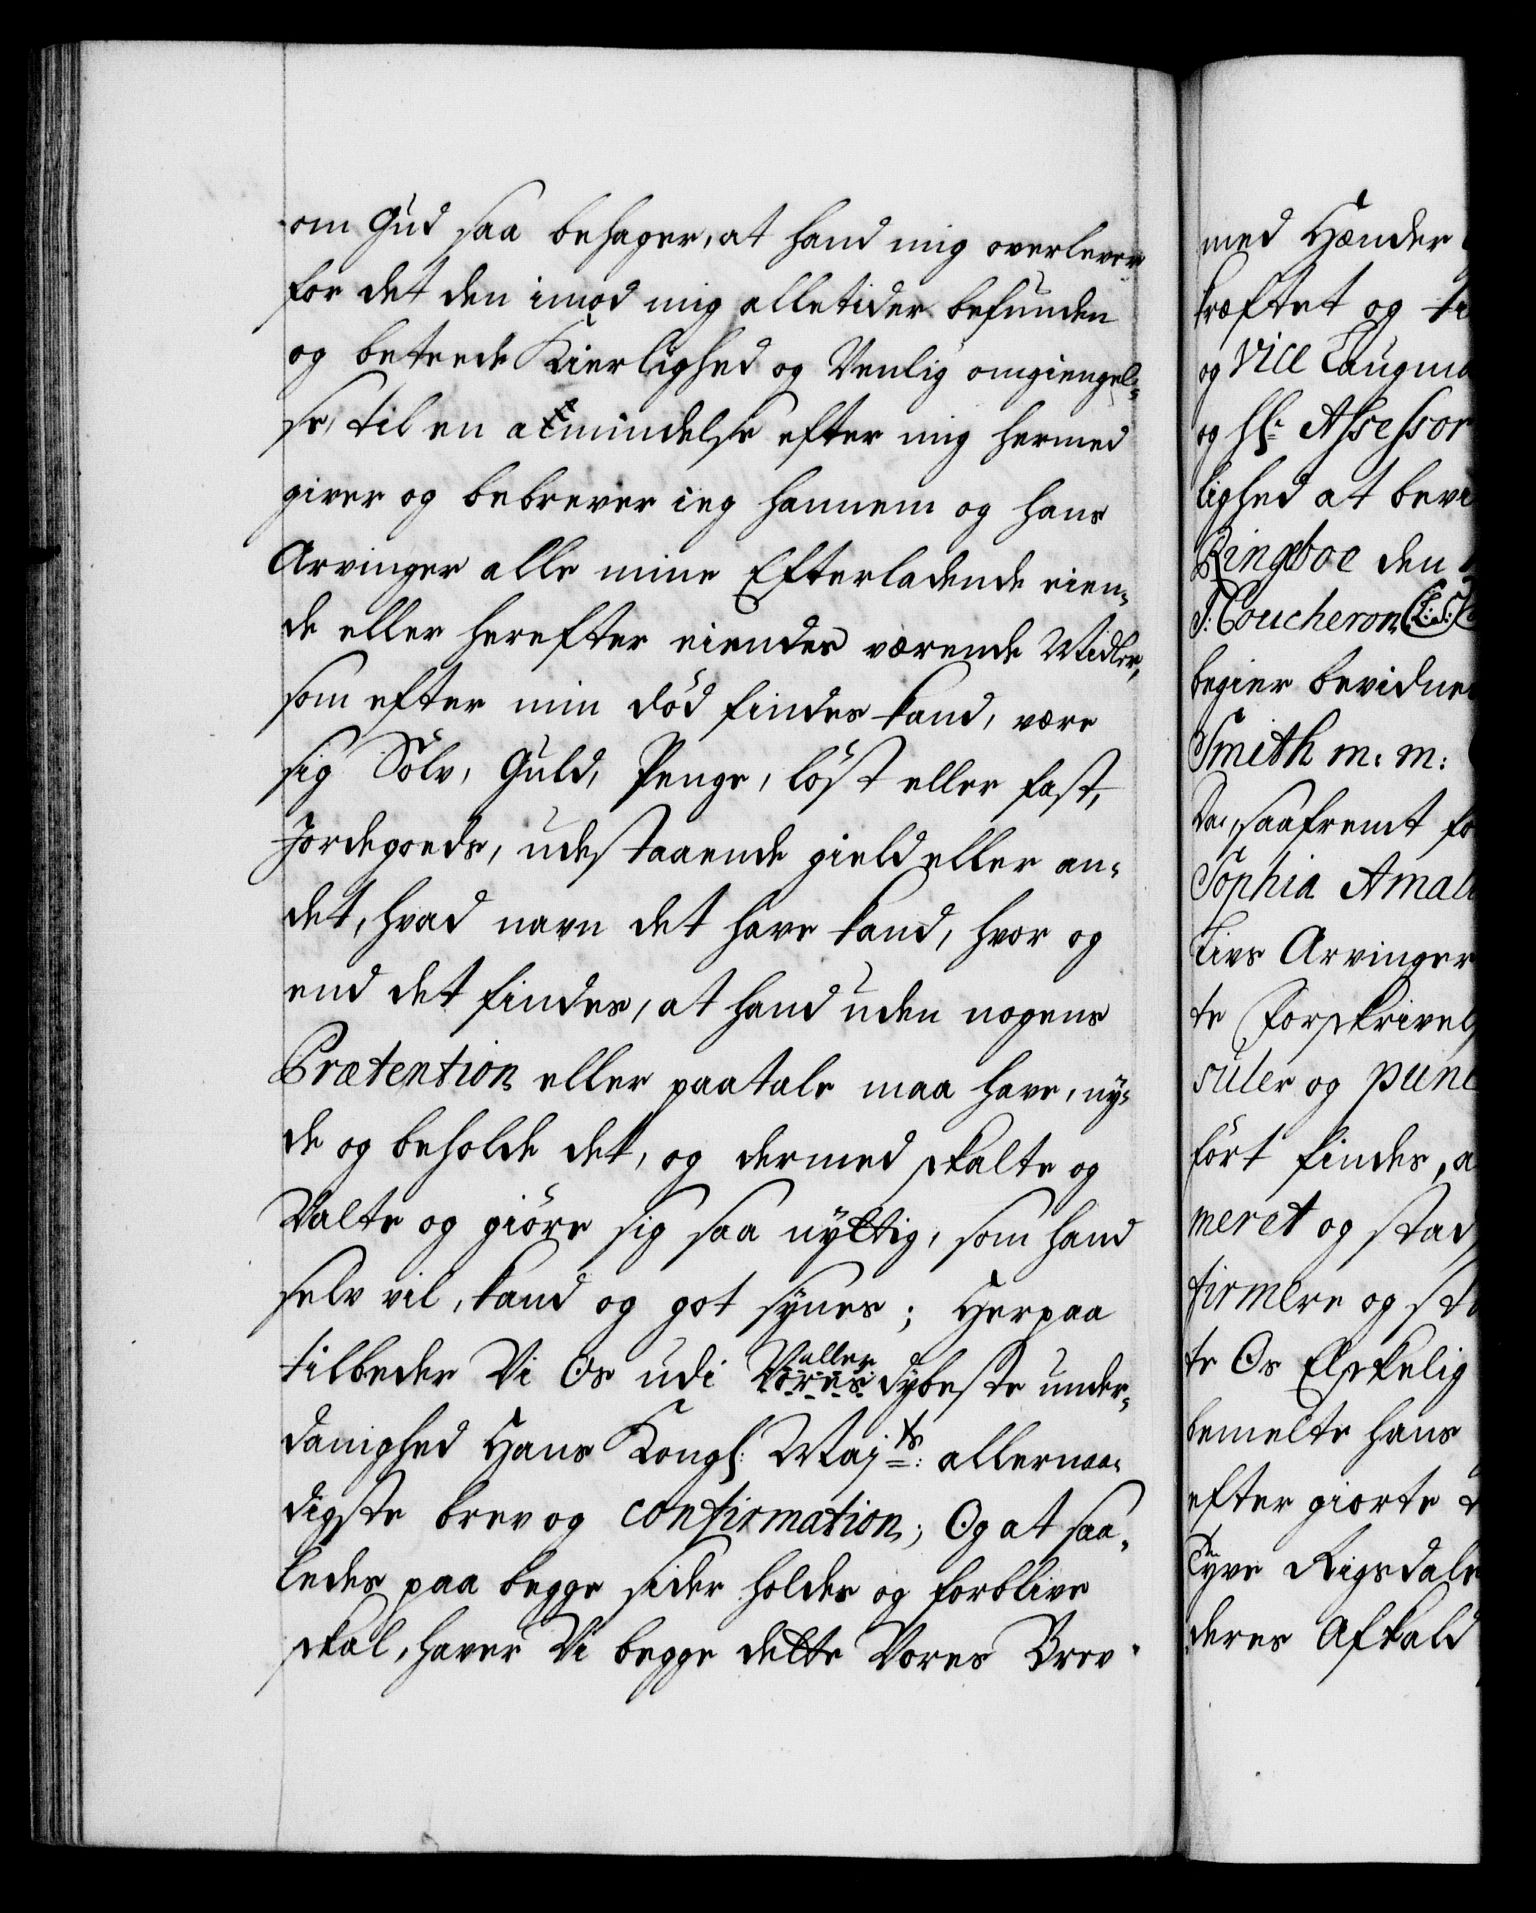 om Gud saa behager, at hand mig overlever
for det den imod mig alletider befunden
og beteede Kierlighed og Venlig omgiengel-
se, til en amindelse efter mig hermed
giver og bebrever ieg hannem og hans
Arvinger alle mine Efterladende eien-
de eller herefter eiendes værende Midler,
som efter min död findes kand, være
sig Sölv, Guld, Penge, löst eller fast,
Jordegoeds, udestaaende gield eller an-
det, hvad navn det have kand, hvor og
end det findes, at hand uden nogens
Prætention eller paatale maa have, ny-
de og beholde det, og dermed skalte og
Valte og giöre sig saa nyttig, som hand
selv vil, kand og got synes; Herpaa
tilbeder Vi Os udi Vores aller dybeste under-
danighed Hans Kongl: Majts: allernaa-
digste brev og confirmation; Og at saa-
ledes paa begge sider holdes og forblive
skal, haver Vi begge dette Vores Brev
med Hænder
kræftet og
og Vice Laugma
og Hr: Assessor
lighed at bevi
Ringboe den
J: Coucheron (L:S:)
begier bevidner
Smith m: m:
Da, saafremt fo
Sophia Amali
Livs Arvinger
te Forskrivels
suler og punc
fört findes, a
meret og stad
firmere og sta
te Os Elskelig
bemelte hans
efter giorte
Tyve Rigsdale
deres Afkald